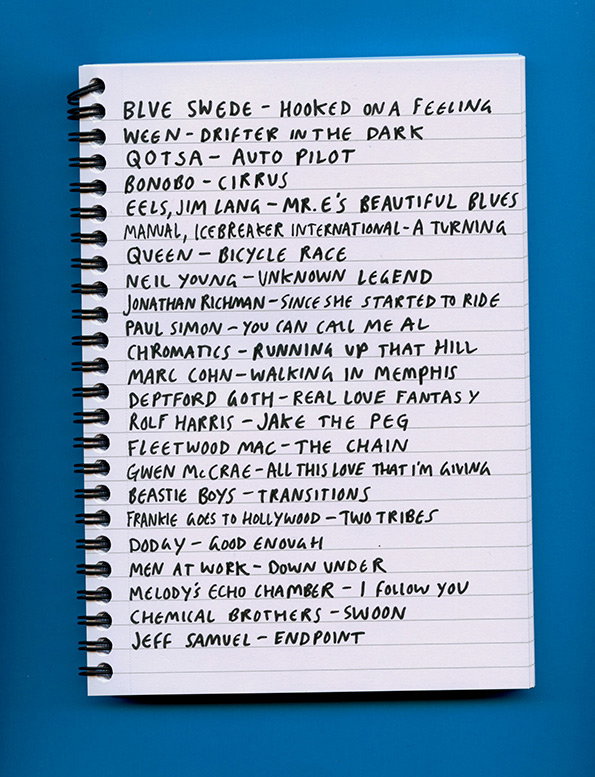 BLUE SWEDE - HOOKED ON A FEELING
WEEN - DRIFTER IN THE DARK
QOTSA - AUTO PILOT
BONOBO - CIRRUS
EELS, JIM LANG - MR. E'S BEAUTIFUL BLUES
MANUAL, ICEBREAKER INTERNATIONAL - A TURNING
QUEEN - BICYCLE RACE
NEIL YOUNG - UNKNOWN LEGEND
JONATHAN RICHMAN - SINCE SHE STARTED TO RIDE
PAUL SIMON - YOU CAN CALL ME AL
CHROMATICS - RUNNING UP THAT HILL
MARC COHN - WALKING IN MEMPHIS
DEPTFORD GOTH - REAL LOVE FANTASY
ROLF HARRIS - JAKE THE PEG
FLEETWOOD MAC - THE CHAIN
GWEN McCRAE - ALL THIS LOVE THAT I'M GIVING
BEASTIE BOYS - TRANSITIONS
FRANKIE GOES TO HOLLYWOOD - TWO TRIBES
DODGY - GOOD ENOUGH
MEN AT WORK - DOWN UNDER
MELODY'S ECHO CHAMBER - I FOLLOW YOU
CHEMICAL BROTHERS - SWOON
JEFF SAMUEL - ENDPOINT